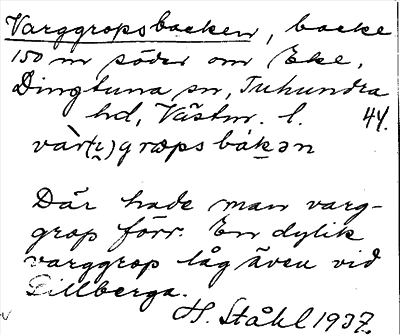 Varggropsbacken, backe
150 m söder om Eke,
Dingtuna sn, Tuhundra
hd, Västm. l. 44.
vàr(ı̨)gropsbákən
Där hade man varg-
grop förr. En dylik
varggrop låg även vid
Lillberga.
H. Ståhl 1937.